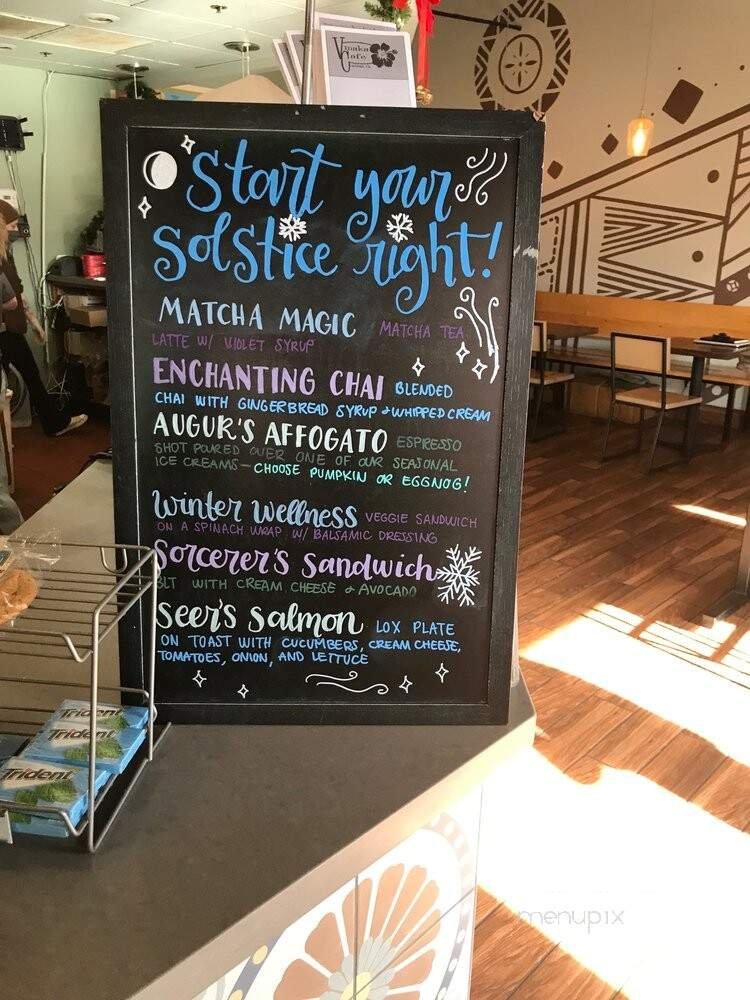 Vinaka
Café
Start your
solstice right!
MATCHA MAGIC MATCHA TEA
LATTE W/ VIOLET SYRUP
ENCHANTING CHAI BLENDED
CHAI WITH GINGERBREAD SYRUP & WHIPPED CREAM
AUGUR'S AFFOGATO ESPRESSO
SHOT POURED OVER ONE OF OUR SEASONAL
ICE CREAMS- CHOOSE PUMPKIN OR EGGNOG!
Winter Wellness VEGGIE SANDWICH
ON A SPINACH WRAP W/ BALSAMIC DRESSING
Sorcerer's Sandwich
BLT WITH CREAM CHEESE & AVOCADO
Seer's Salmon LOX PLATE
ON TOAST WITH CUCUMBERS, CREAM CHEESE,
TOMATOES, ONION, AND LETTUCE
Trident
Trident
Trident
menupix